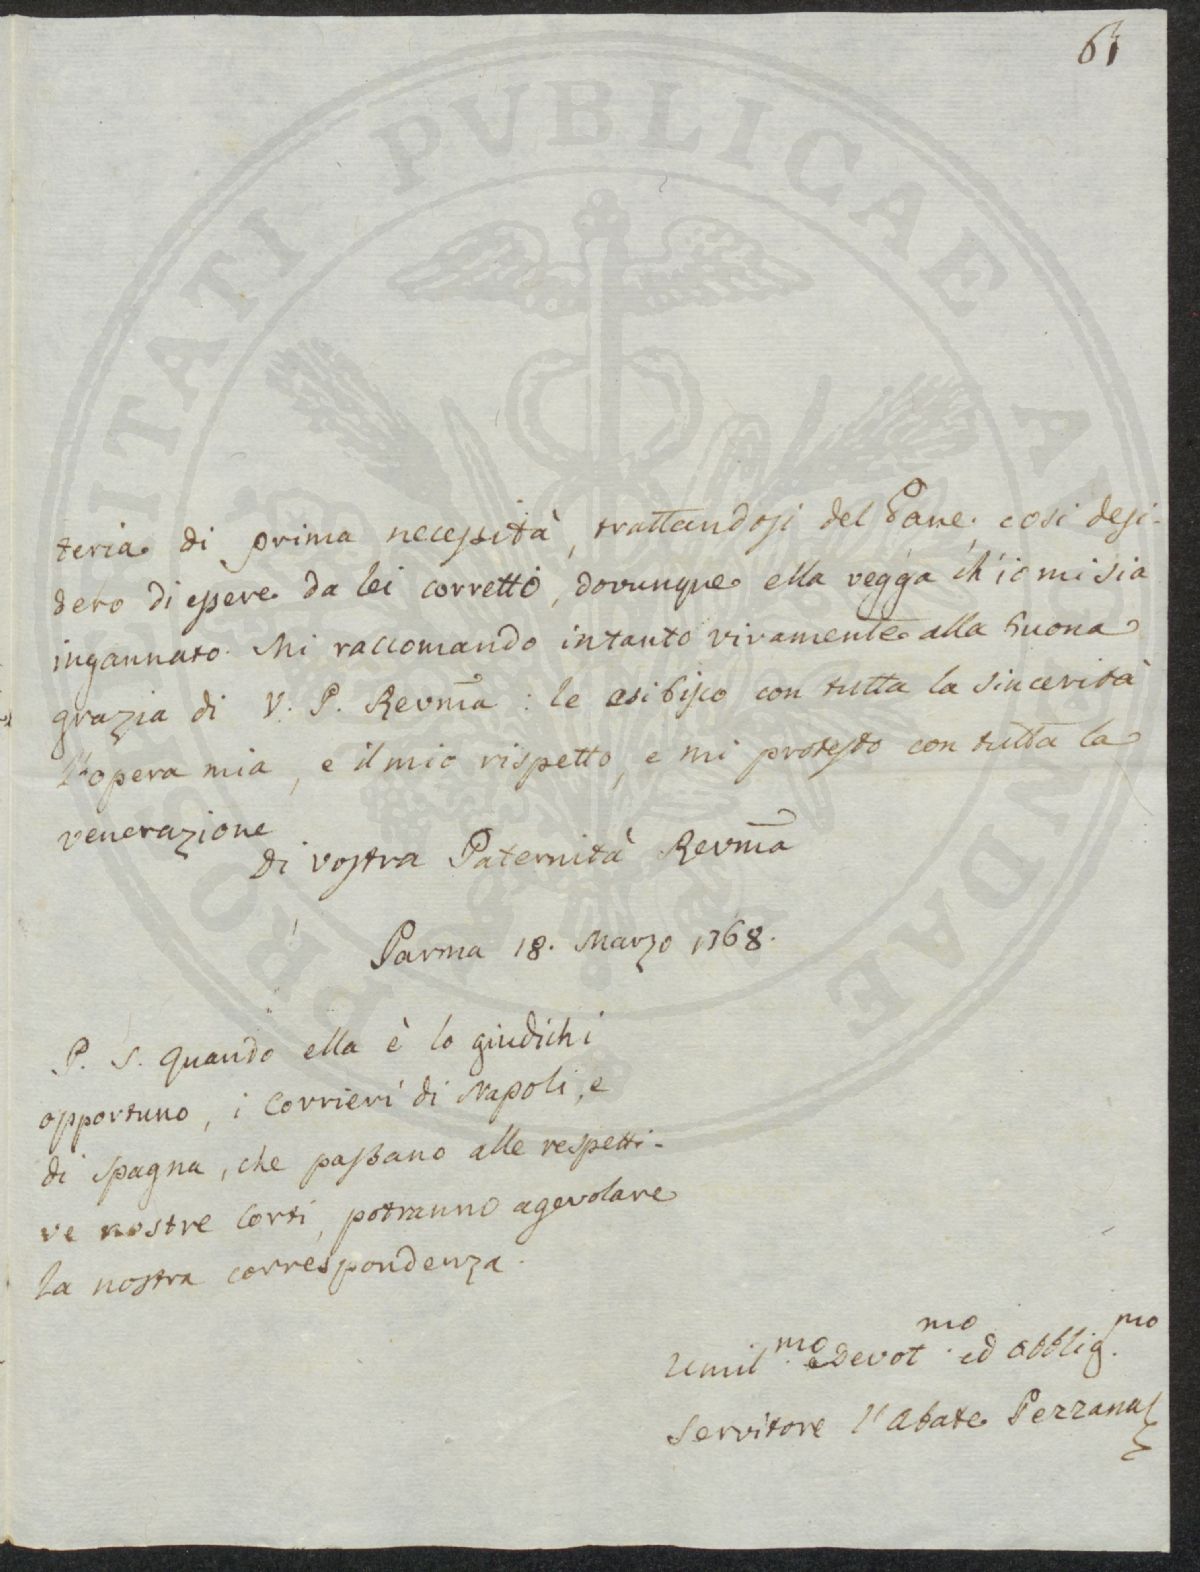 61
teria di prima necessità, trattandosi del Pane, così desi-
dero di essere da lei corretto, dovunque ella vegga ch'io mi sia
ingannato. Mi raccomando intanto vivamente alla buona
grazia di V. P. Revma : le esibisco con tutta la sincerità
l'opera mia, e il mio rispetto, e mi protesto con tutta la
venerazione
di vostra Paternità Revma
Parma 18. Marzo 1768.
P. S. Quando ella è lo giudichi
opportuno, i Corrieri di Napoli, e
di Spagna, che passano alle respetti-
ve nostre Corti, potranno agevolare
la nostra corrispondenza.
Umilmo e Devotmo ed Obbligmo
Servitore l'Abate Pezzana
PROSPERITATI PUBLICAE AUGENDAE